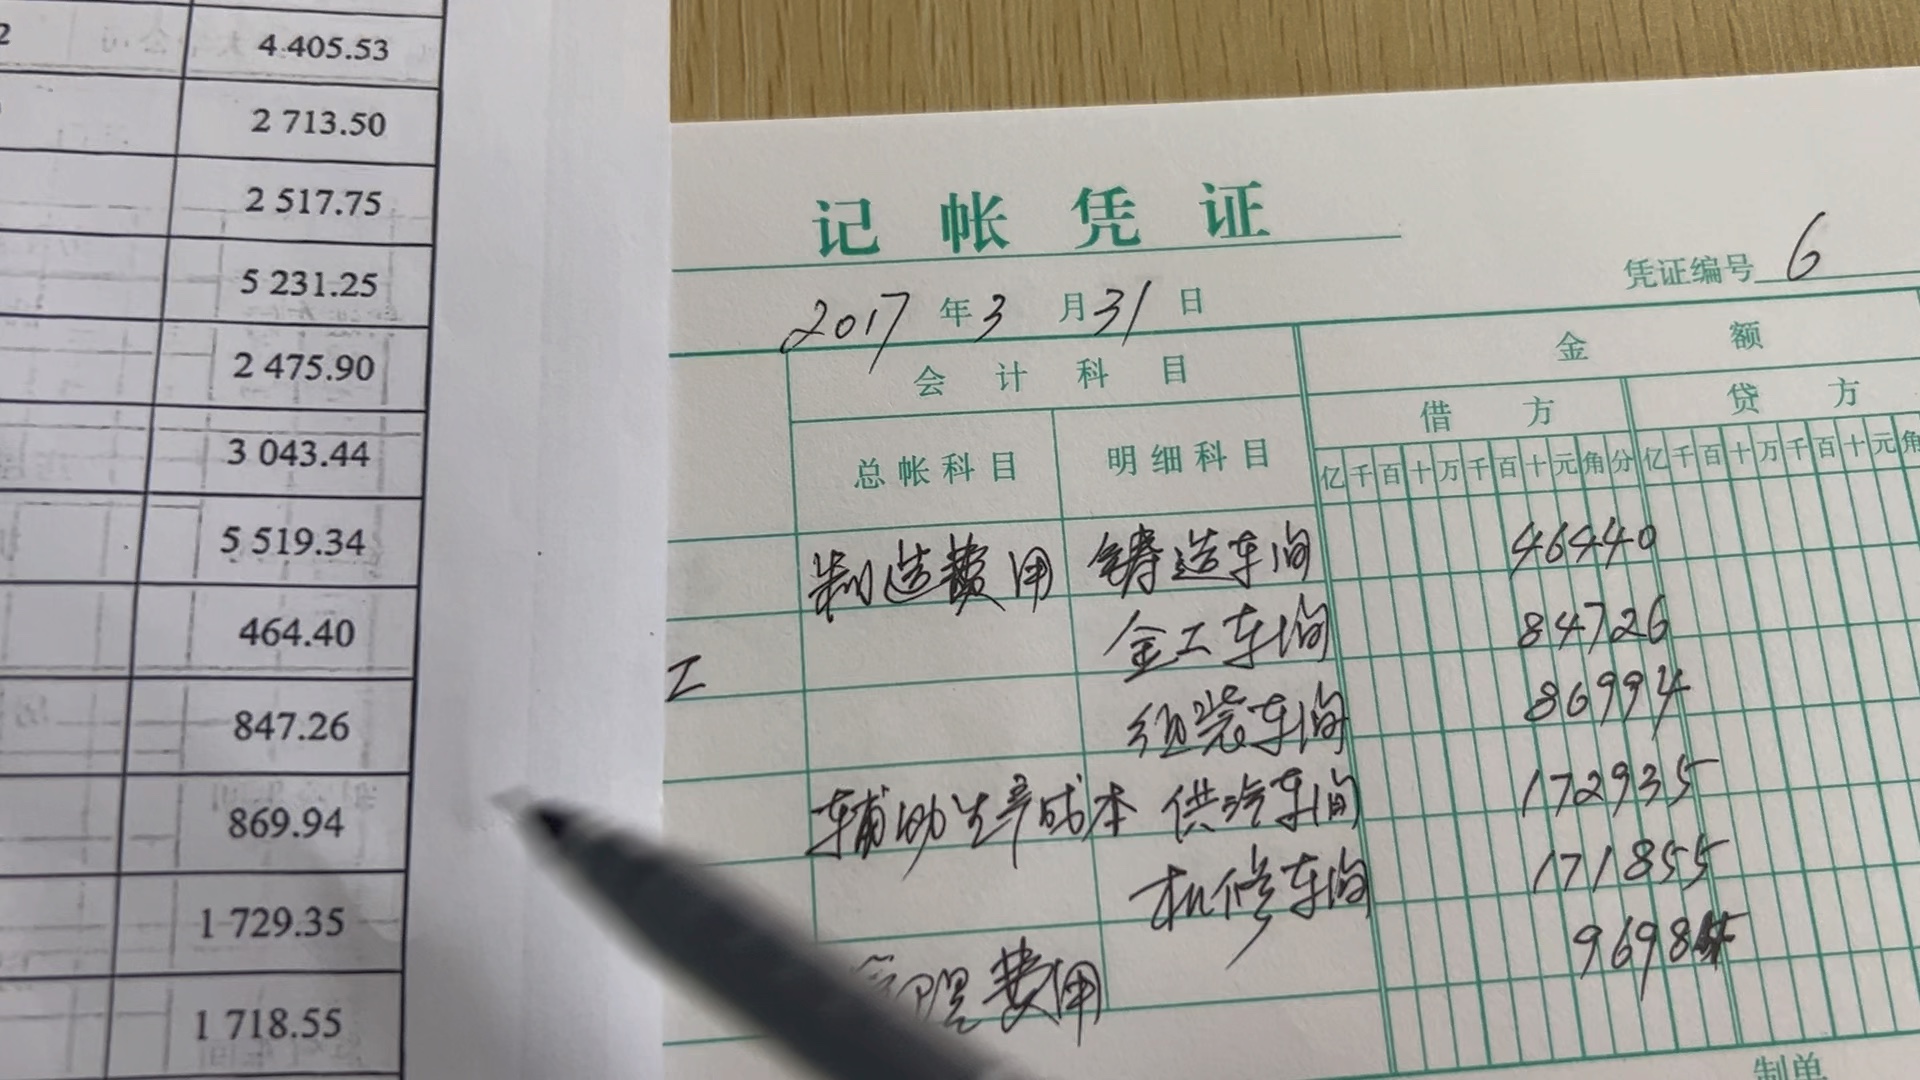 2
4 405.53
2 713.50
2 517.75
5 231.25
2 475.90
3 043.44
5 519.34
464.40
847.26
869.94
1 729.35
1 718.55
记帐凭证
凭证编号 6
2017 年 3 月 31 日
会计科目 金额
借方 贷方
总帐科目 明细科目 亿千百十万千百十元角分 亿千百十万千百十元角
制造费用 铸造车间 46440
工 金工车间 84726
组装车间 86994
辅助生产成本 供汽车间 172935
机修车间 171855
管理费用
制单